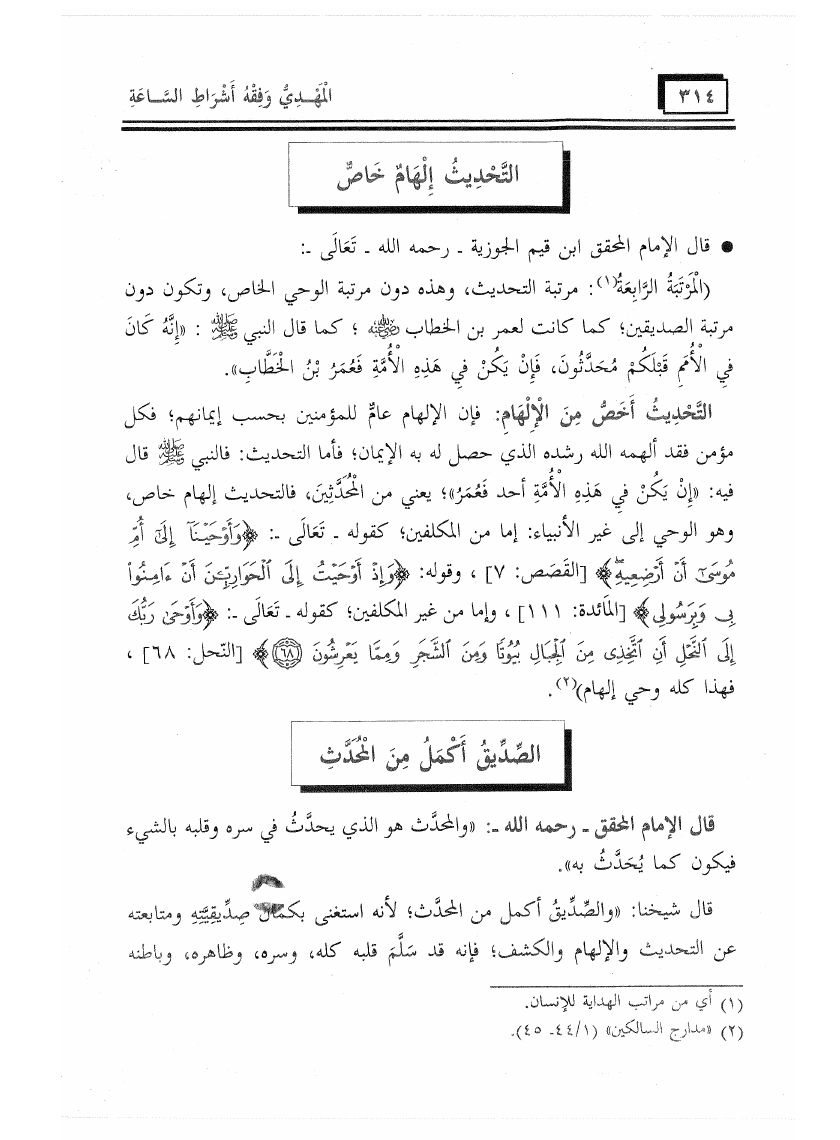 ٣١٤
الْمَهْـدِيُّ وَفِقْهُ أَشْرَاطِ السَّـاعَةِ
التَّحْدِيثُ إِلْهَامٌ خَاصٌّ
● قال الإمام المحقق ابن قيم الجوزية ـ رحمه الله ـ تَعَالَى ـ:
(الْمَرْتَبَةُ الرَّابِعَةُ(١): مرتبة التحديث، وهذه دون مرتبة الوحي الخاص، وتكون دون
مرتبة الصديقين؛ كما كانت لعمر بن الخطاب رضي الله عنه ؛ كما قال النبي ﷺ : «إِنَّهُ كَانَ
فِي الْأُمَمِ قَبْلَكُمْ مُحَدَّثُونَ، فَإِنْ يَكُنْ فِي هَذِهِ الْأُمَّةِ فَعُمَرُ بْنُ الْخَطَّابِ».
التَّحْدِيثُ أَخَصُّ مِنَ الْإِلْهَامِ: فإن الإلهام عامٌّ للمؤمنين بحسب إيمانهم؛ فكل
مؤمن فقد ألهمه الله رشده الذي حصل له به الإيمان؛ فأما التحديث: فالنبي ﷺ قال
فيه: «إِنْ يَكُنْ فِي هَذِهِ الْأُمَّةِ أحد فَعُمَرُ»؛ يعني من الْمُحَدَّثِينَ، فالتحديث إلهام خاص،
وهو الوحي إلى غير الأنبياء: إما من المكلفين؛ كقوله ـ تَعَالَى ـ: ﴿وَأَوْحَيْنَآ إِلَىٰٓ أُمِّ
مُوسَىٰٓ أَنْ أَرْضِعِيهِۖ﴾ [القَصَص: ٧] ، وقوله: ﴿وَإِذْ أَوْحَيْتُ إِلَى ٱلْحَوَارِيِّـۧنَ أَنْ ءَامِنُوا۟
بِى وَبِرَسُولِى﴾ [المَائدة: ١١١] ، وإما من غير المكلفين؛ كقوله ـ تَعَالَى ـ: ﴿وَأَوْحَىٰ رَبُّكَ
إِلَى ٱلنَّحْلِ أَنِ ٱتَّخِذِى مِنَ ٱلْجِبَالِ بُيُوتًا وَمِنَ ٱلشَّجَرِ وَمِمَّا يَعْرِشُونَ ۝٦٨﴾ [النّحل: ٦٨] ،
فهذا كله وحي إلهام)(٢).
الصِّدِّيقُ أَكْمَلُ مِنَ الْمُحَدَّثِ
قال الإمام المحقق ـ رحمه الله ـ: «والمحدَّث هو الذي يحدَّثُ في سره وقلبه بالشيء
فيكون كما يُحَدَّثُ به».
قال شيخنا: «والصِّدِّيقُ أكمل من المحدَّث؛ لأنه استغنى بكمال صِدِّيقِيَّتِهِ ومتابعته
عن التحديث والإلهام والكشف؛ فإنه قد سَلَّمَ قلبه كله، وسره، وظاهره، وباطنه
(١) أي من مراتب الهداية للإنسان.
(٢) «مدارج السالكين» (١/ ٤٤ـ ٤٥).